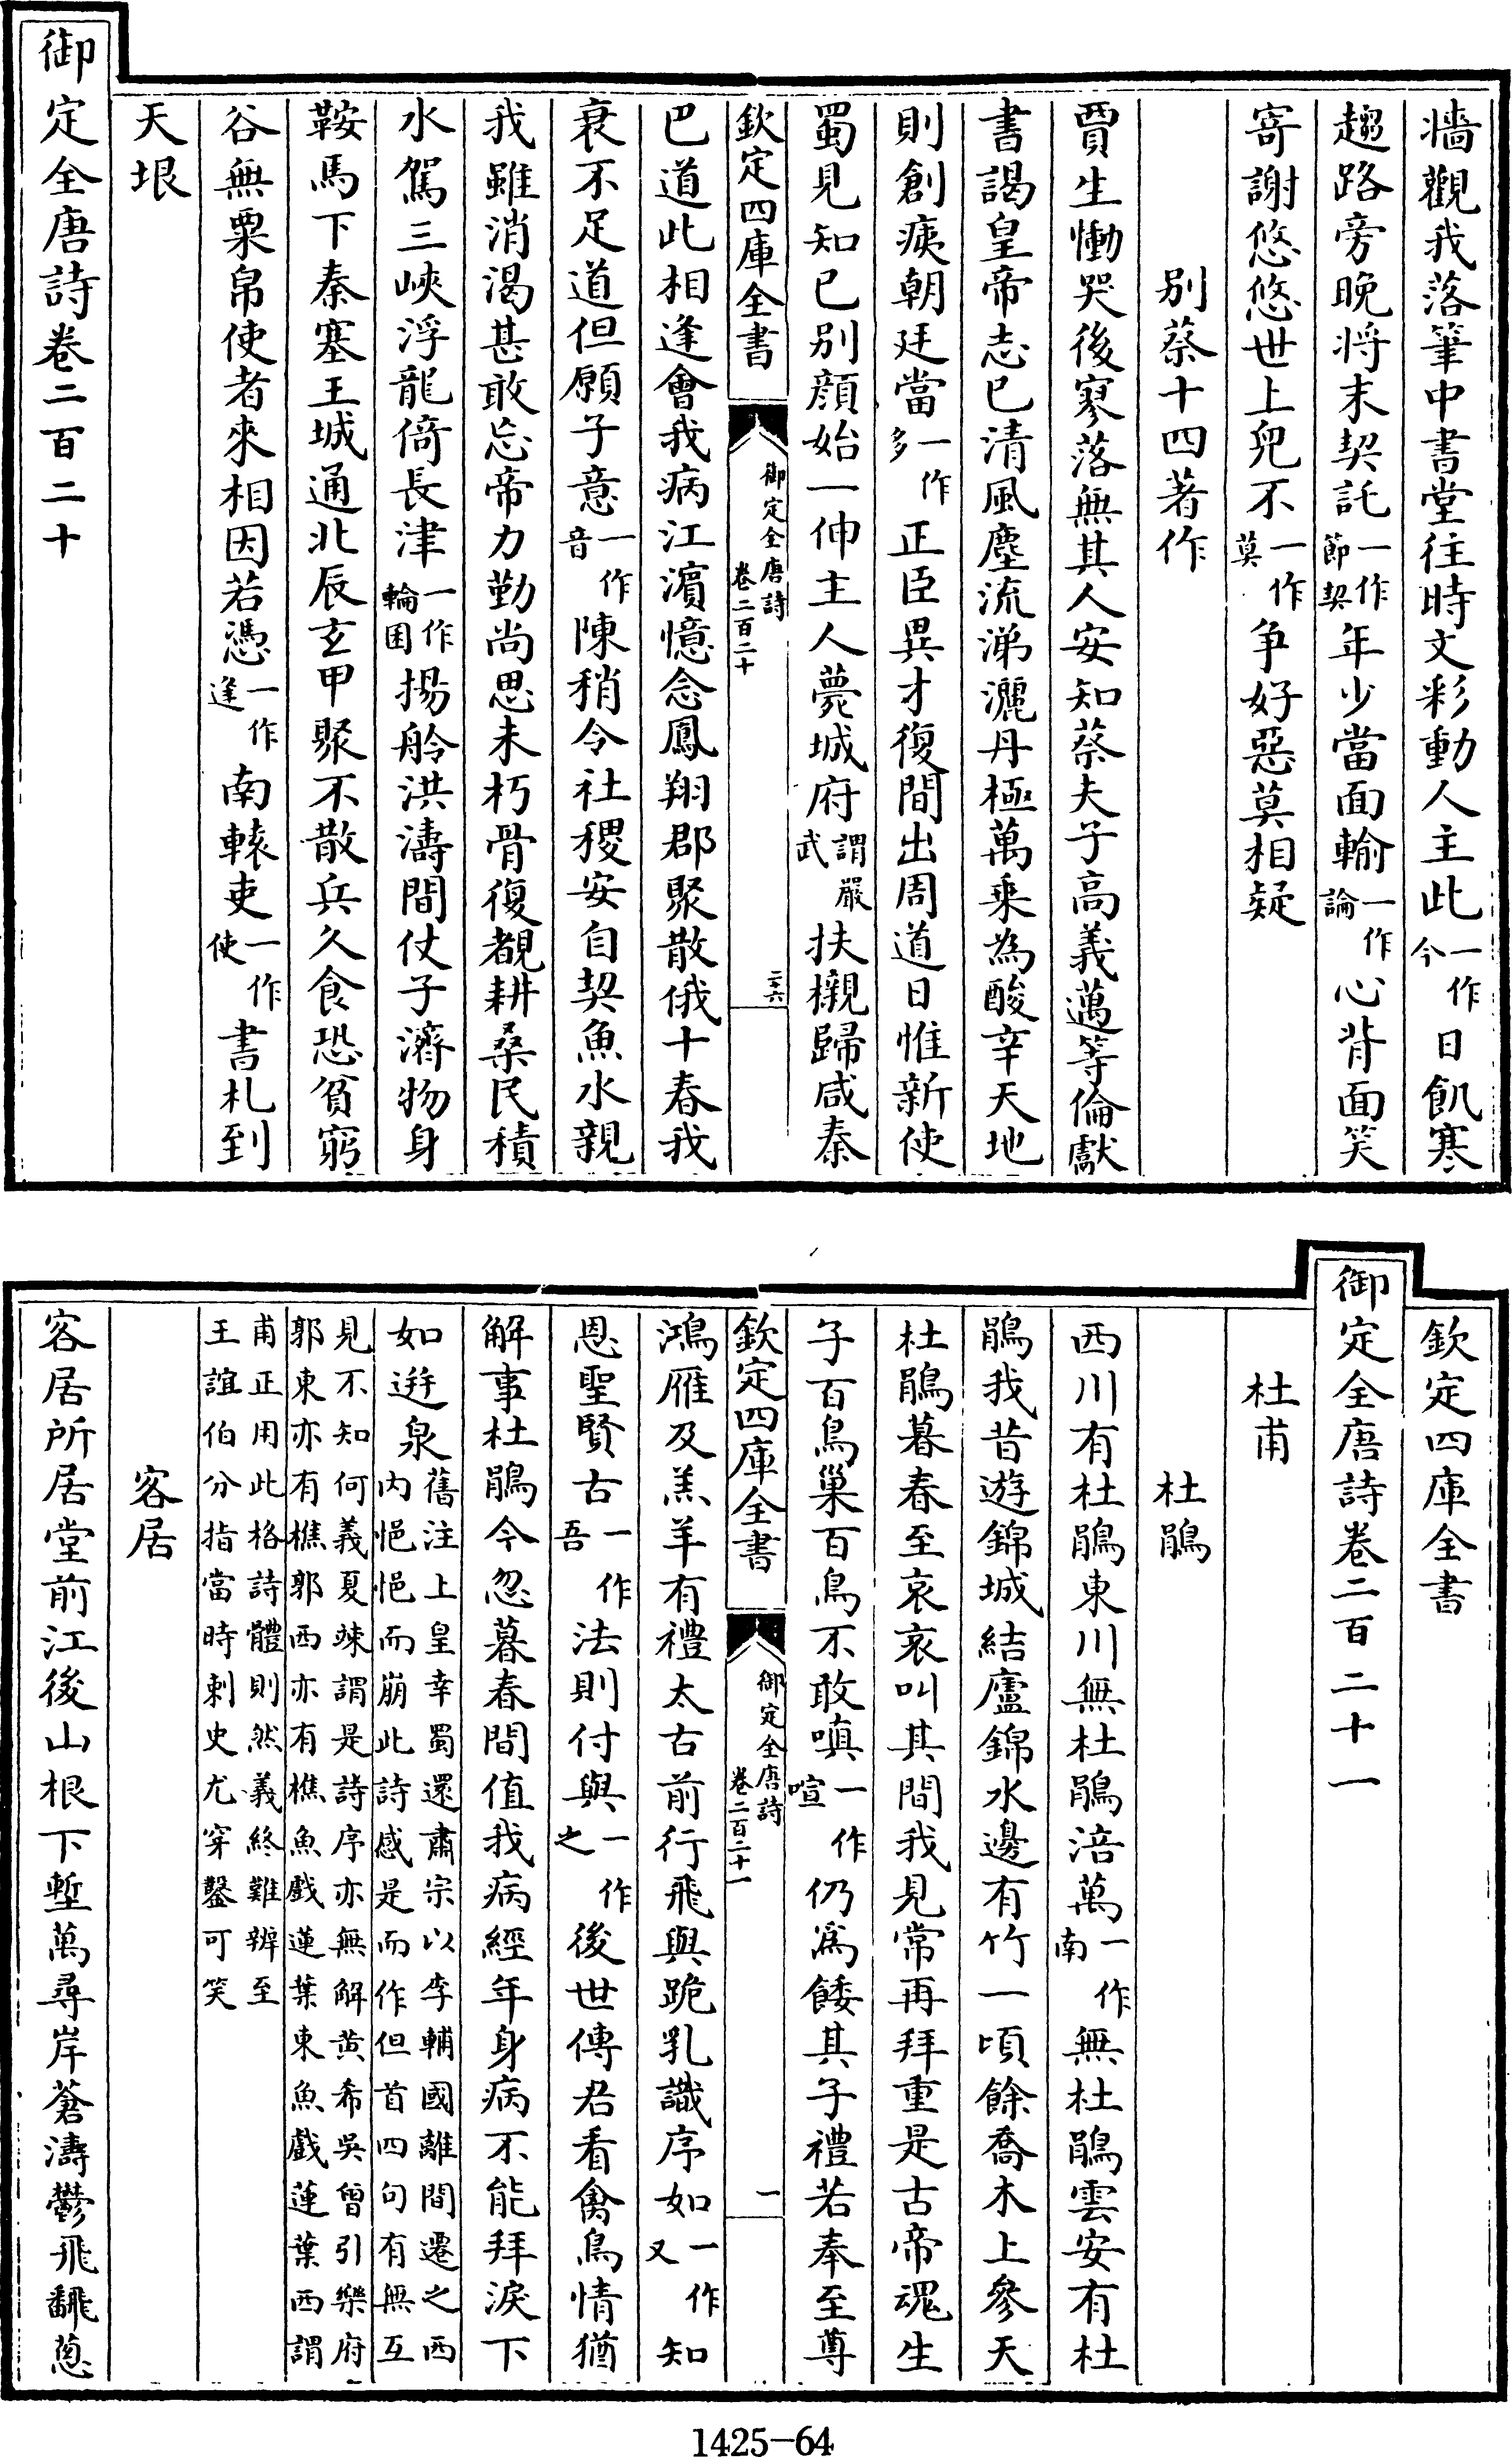 牆觀我落筆中書堂往時文彩動人主此一作今日飢寒
趨路旁晚將末契託一作節契年少當面輸一作論心背面笑
寄謝悠悠世上兒不一作莫爭好惡莫相疑
别蔡十四著作
賈生慟哭後寥落無其人安知蔡夫子高義邁等倫獻
書謁皇帝志已清風塵流涕灑丹極萬乘為酸辛天地
則創痍朝廷當一作多正臣異才復間出周道日惟新使
蜀見知已别顔始一伸主人薨城府謂嚴武扶櫬歸咸秦
欽定四庫全書 御定全唐詩卷二百二十 二十六
巴道此相逢會我病江濱憶念鳳翔郡聚散俄十春我
衰不足道但願子意一作音陳稍令社稷安自契魚水親
我雖消渴甚敢忘帝力勤尚思未朽骨復覩耕桑民積
水駕三峽浮龍倚長津一作輪囷揚舲洪濤間仗子濟物身
鞍馬下秦塞王城通北辰玄甲聚不散兵久食恐貧窮
谷無粟帛使者來相因若憑一作逢南轅吏一作使書札到
天垠
御定全唐詩卷二百二十
欽定四庫全書
御定全唐詩卷二百二十一
杜甫
杜鵑
西川有杜鵑東川無杜鵑涪萬一作南無杜鵑雲安有杜
鵑我昔遊錦城結廬錦水邊有竹一頃餘喬木上參天
杜鵑暮春至哀哀叫其間我見常再拜重是古帝魂生
子百鳥巢百鳥不敢嗔一作喧仍爲餧其子禮若奉至尊
欽定四庫全書 御定全唐詩卷二百二十一 一
鴻雁及羔羊有禮太古前行飛與跪乳識序如一作又知
恩聖賢古一作吾法則付與一作之後世傳君看禽鳥情猶
解事杜鵑今忽暮春間值我病經年身病不能拜淚下
如迸泉舊注上皇幸蜀還肅宗以李輔國離間遷之西内悒悒而崩此詩感是而作但首四句有無互
見不知何義夏竦謂是詩序亦無解黄希吳曾引樂府郭東亦有樵郭西亦有樵魚戲蓮葉東魚戲蓮葉西謂
甫正用此格詩體則然義終難辨至王誼伯分指當時刺史尤穿鑿可笑
客居
客居所居堂前江後山根下塹萬尋岸蒼濤鬱飛翻葱
1425-64